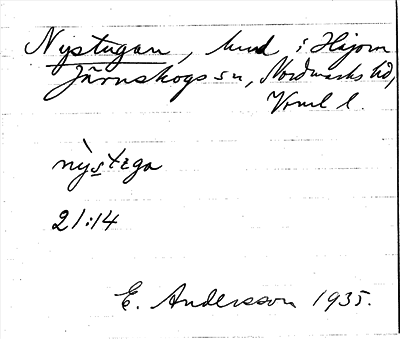 Nystugan, hmd i Häjom
Järnskogs sn, Nordmarks hd,
Vrml l.
nỳstega
21:14
E. Andersson 1935.